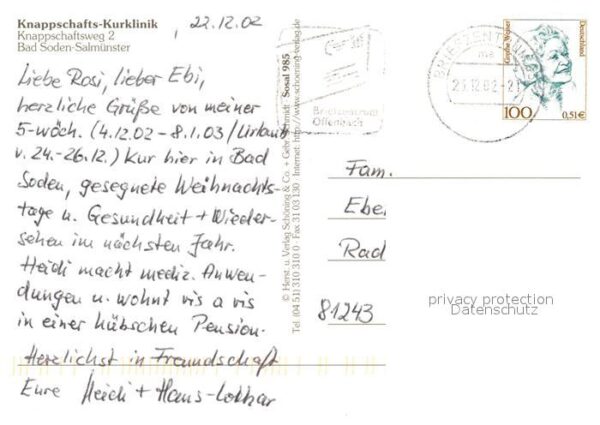 Knappschafts-Kurklinik
Knappschaftsweg 2
Bad Soden-Salmünster
22.12.02
Liebe Rosi, lieber Ebi,
herzliche Grüße von meiner
5-wöch. (4.12.02 - 8.1.03/Urlaub
v. 24.-26.12.) Kur hier in Bad
Soden, gesegnete Weihnachts-
tage u. Gesundheit + Wieder-
sehen im nächsten Jahr.
Heidi macht mediz. Anwen-
dungen u. wohnt vis a vis
in einer hübschen Pension.
Herzlichst in Freundschaft
Eure Heidi + Hans-Lothar
© Herst. u. Verlag Schöning & Co. + Gebr. Schmidt · Sosal 985
Tel. (04 51) 310 310 0 · Fax 31 03 130 · Internet: http://www.schoening-verlag.de
Briefzentrum
Offenbach
BRIEFZENTRUM
23.12.02-21
Grethe Weiser
Deutschland
100
0,51€
Fam.
Ebe
Rad
81243
privacy protection
Datenschutz